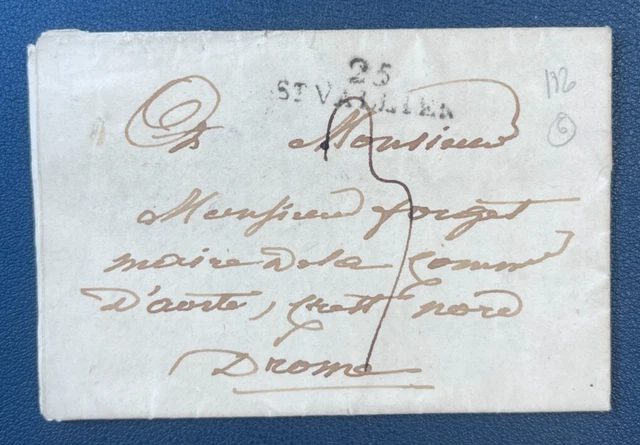 25
ST VALLIER
132
6
A Monsieur
Monsieur forget
maire de la Comm
D'aoste, Crest nord
Drome